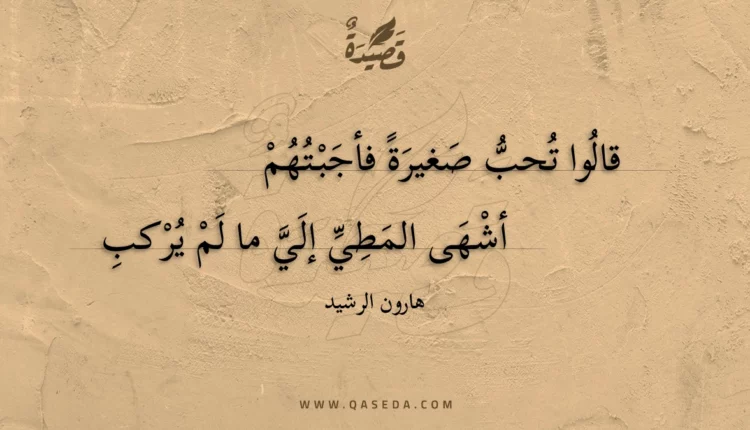 قَصِيدَةٌ
قالُوا تُحبُّ صَغيرَةً فأجَبْتُهُمْ
أشْهَى المَطِيِّ إلَيَّ ما لَمْ يُرْكبِ
هارون الرشيد
WWW.QASEDA.COM